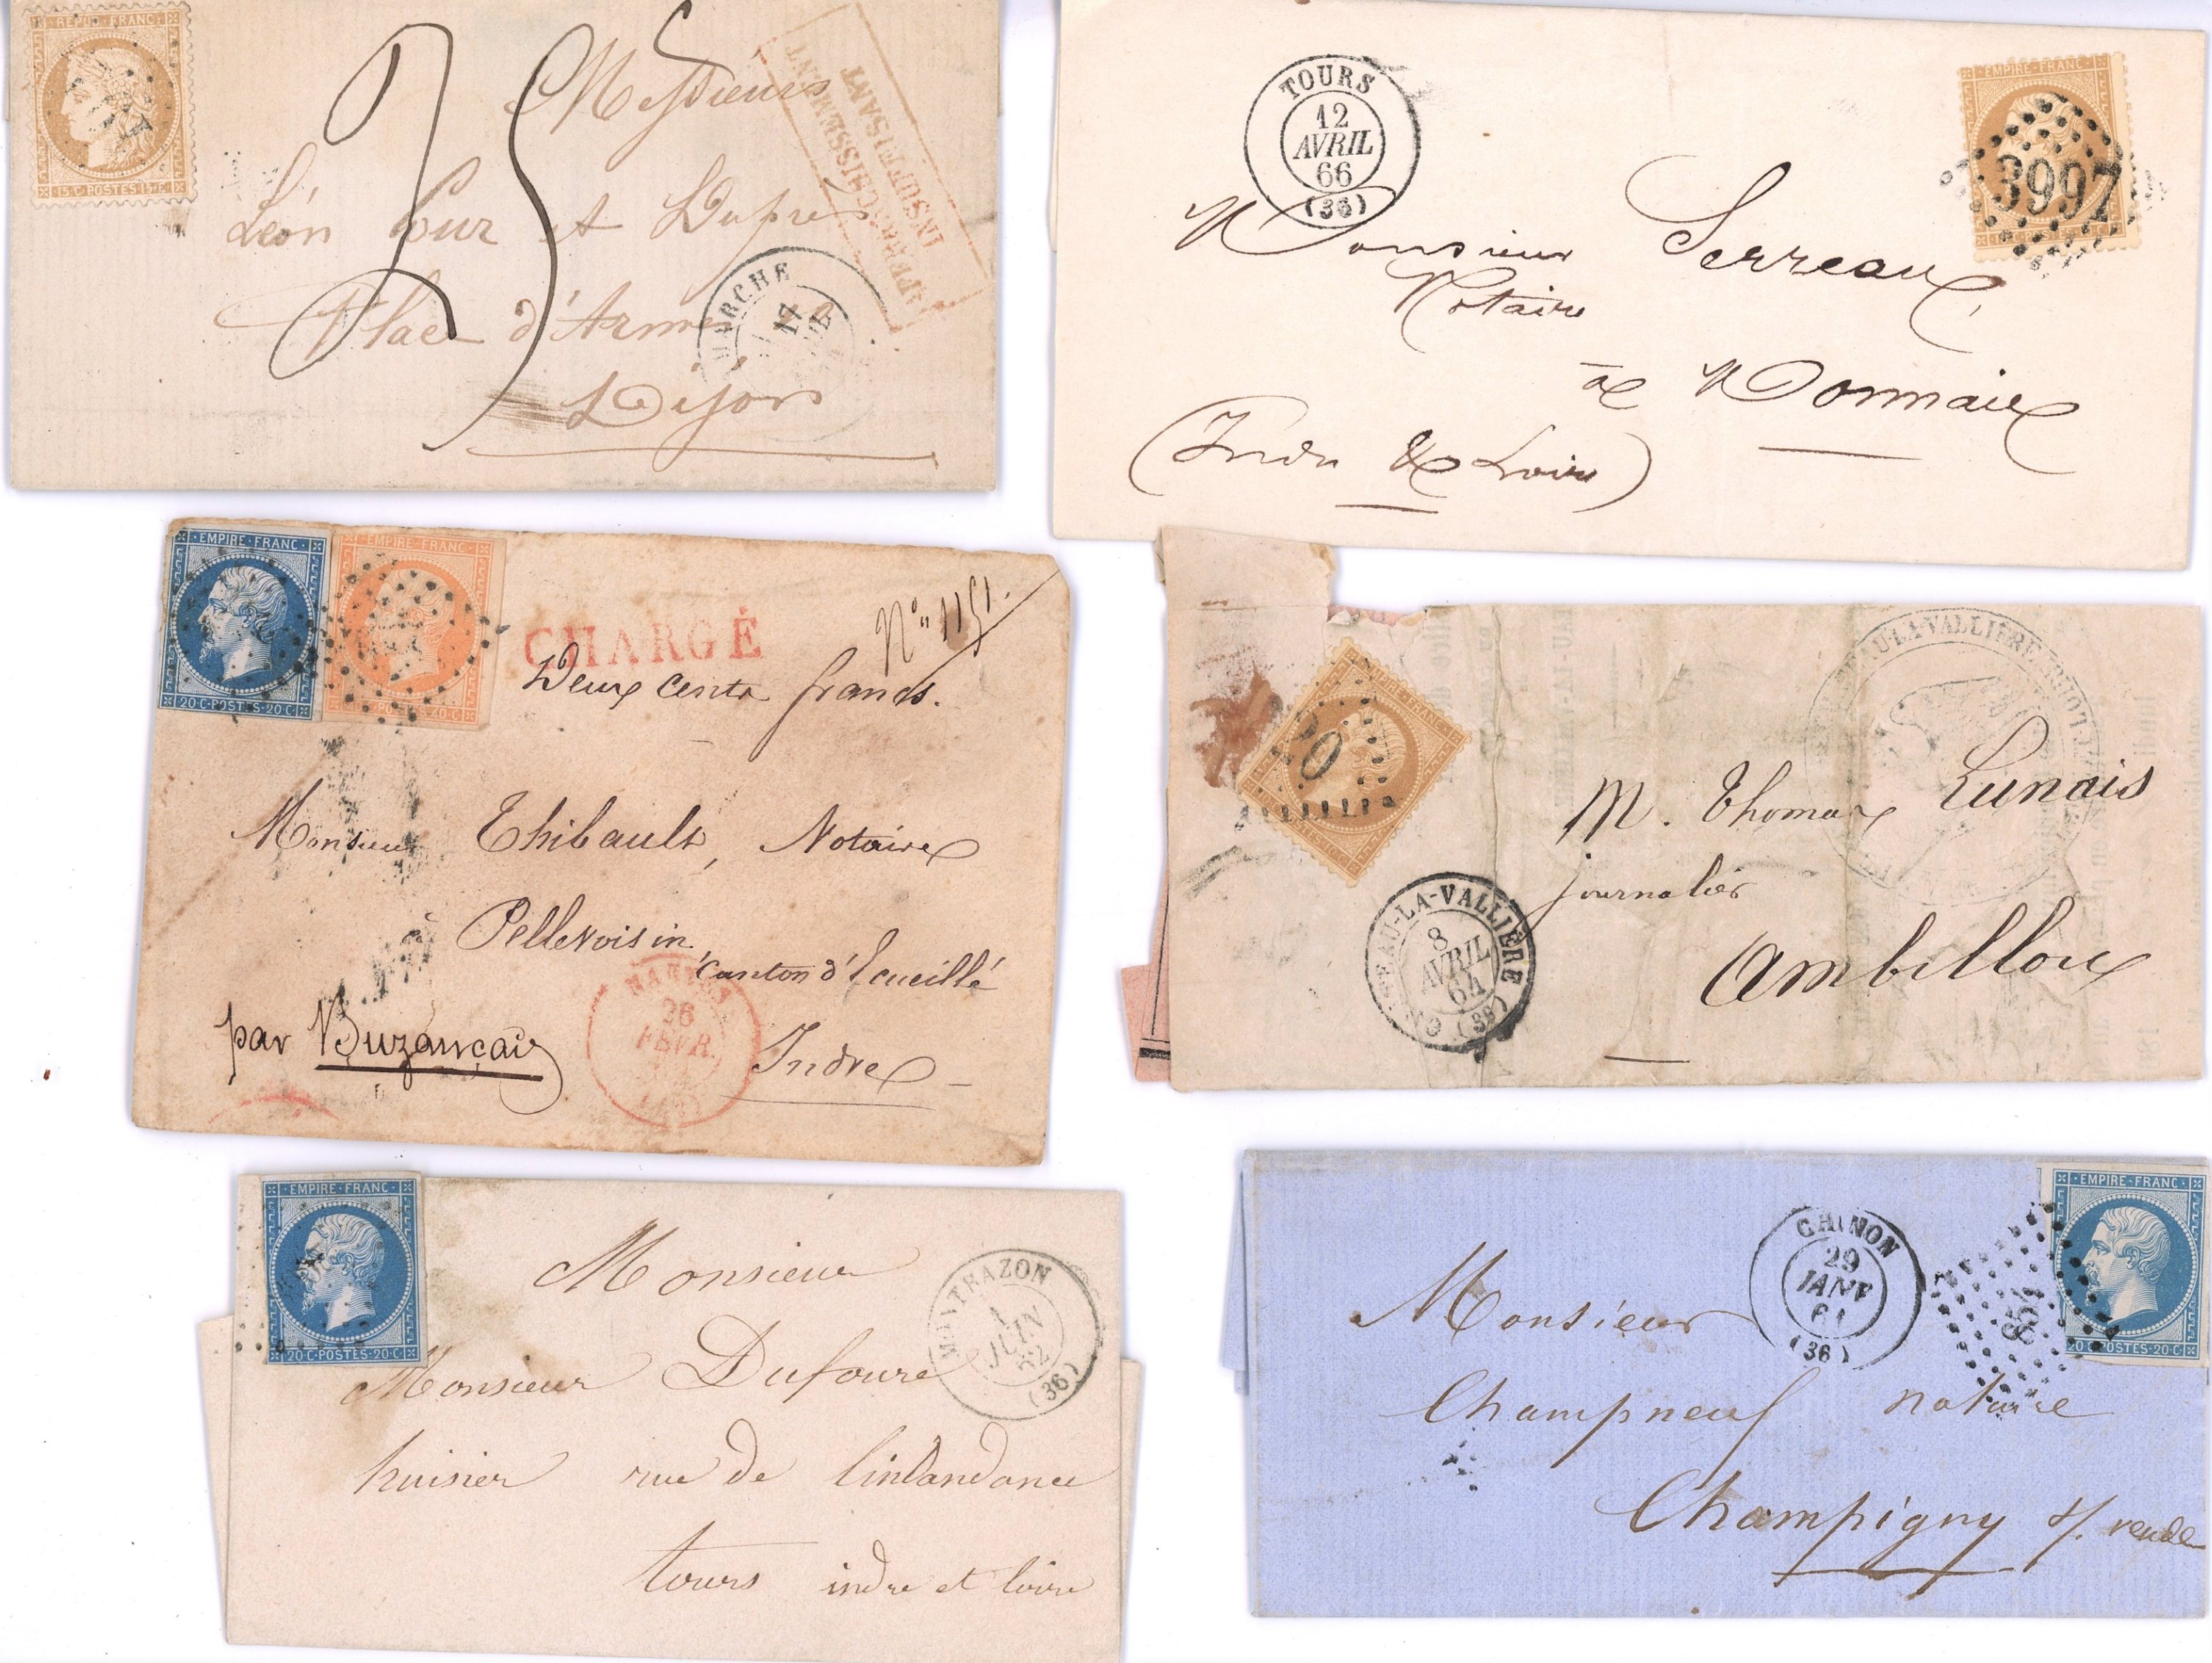 REPUB·FRANC·
15·C·POSTES·15·C
25
Messieurs
AFFRANCHISSEMENT
INSUFFISANT
Léon et Dupré
Place d'Armes
MARCHE
17
Dijon
TOURS
12
AVRIL
66
(36)
EMPIRE·FRANC
3997
Monsieur Serreau
Notaire
à Monnaie
(Indre & Loire)
·EMPIRE·FRANC·
20·C·POSTES·20·C
EMPIRE·FRANC·
POSTES·40·C
CHARGÉ
N° 1151.
Deux cents francs.
Monsieur Thibault, Notaire
à Pellevoisin
canton d'Ecueillé
par Buzançais
Indre
26
FEVR.
EMPIRE·FRANC
20
M. Thomas Lunais
journalier
Ambillou
CH·TEAU-LA-VALLIERE
8
AVRIL
64
(36)
·EMPIRE·FRANC·
20·C·POSTES·20·C
Monsieur
MONTBAZON
1
JUIN
62
(36)
Monsieur Dufoure
huisier rue de
tours indre et loire
·EMPIRE·FRANC·
20·C·POSTES·20·C
CHINON
29
JANV
61
(36)
854
Monsieur
Champneuf notaire
Champigny s/. veude